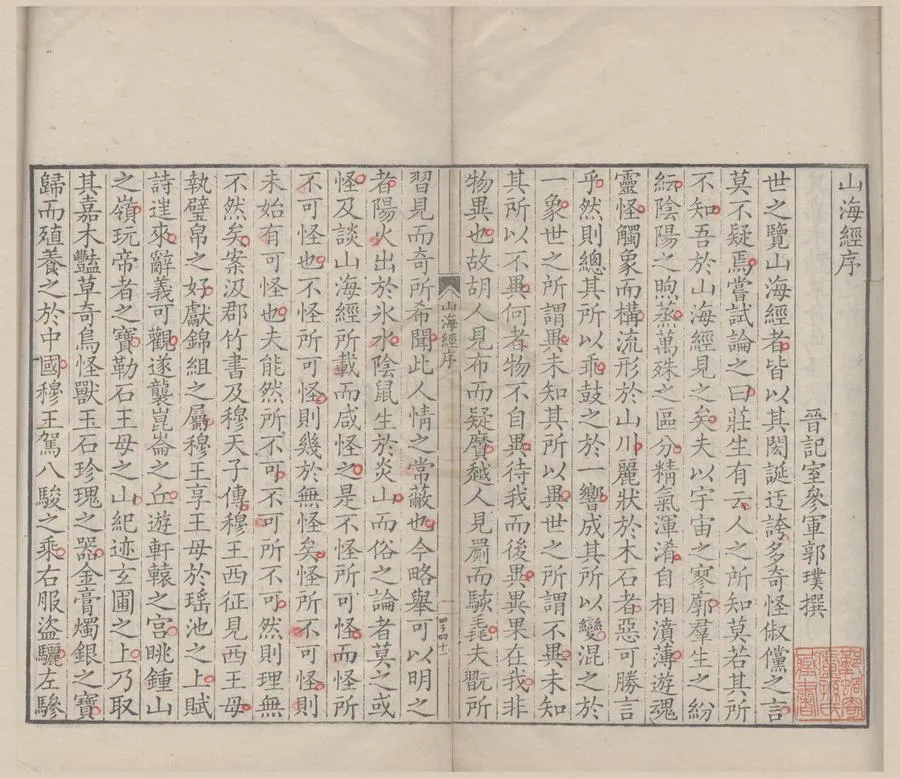 山海經序
晉記室參軍郭璞撰
世之覽山海經者皆以其閎誕迂誇多奇怪俶儻之言
莫不疑焉嘗試論之曰莊生有云人之所知莫若其所
不知吾於山海經見之矣夫以宇宙之寥廓羣生之紛
紜陰陽之煦蒸萬殊之區分精氣渾淆自相濆薄遊魂
靈怪觸象而構流形於山川麗狀於木石者惡可勝言
乎然則總其所以乖鼓之於一響成其所以變混之於
一象世之所謂異未知其所以異世之所謂不異未知
其所以不異何者物不自異待我而後異異果在我非
物異也故胡人見布而疑黂越人見罽而駭毳夫翫所
山海經序
一
習見而奇所希聞此人情之常蔽也今略舉可以明之
者陽火出於氷水陰鼠生於炎山而俗之論者莫之或
怪及談山海經所載而咸怪之是不怪所可怪而怪所
不可怪也不怪所可怪則幾於無怪矣怪所不可怪則
未始有可怪也夫能然所不可不可所不可然則理無
不然矣案汲郡竹書及穆天子傳穆王西征見西王母
執璧帛之好獻錦組之屬穆王享王母於瑤池之上賦
詩逞來辭義可觀遂襲崑崙之丘遊軒轅之宮眺鍾山
之嶺玩帝者之寶勒石王母之山紀迹玄圃之上乃取
其嘉木豔草奇鳥怪獸玉石珍瑰之器金膏燭銀之寶
歸而殖養之於中國穆王駕八駿之乘右服盜驪左驂